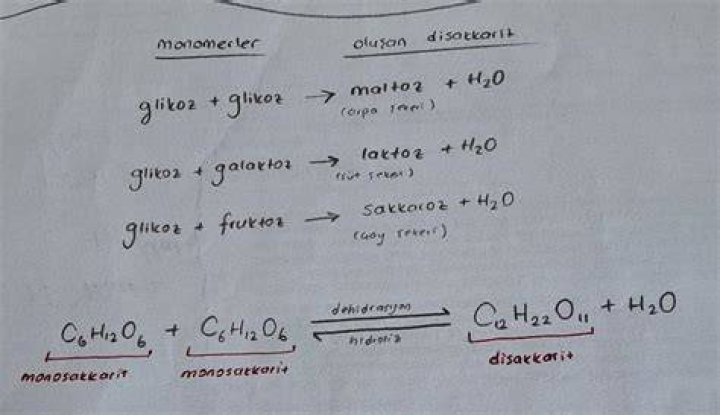 monomerler oluşan disakkarit
glikoz + glikoz → maltoz + H₂O
(arpa şekeri)
glikoz + galaktoz → laktoz + H₂O
(süt şekeri)
glikoz + fruktoz → sakkaroz + H₂O
(çay şekeri)
dehidrasyon
C₆H₁₂O₆ + C₆H₁₂O₆ ⇌ C₁₂H₂₂O₁₁ + H₂O
hidroliz
monosakkarit monosakkarit disakkarit